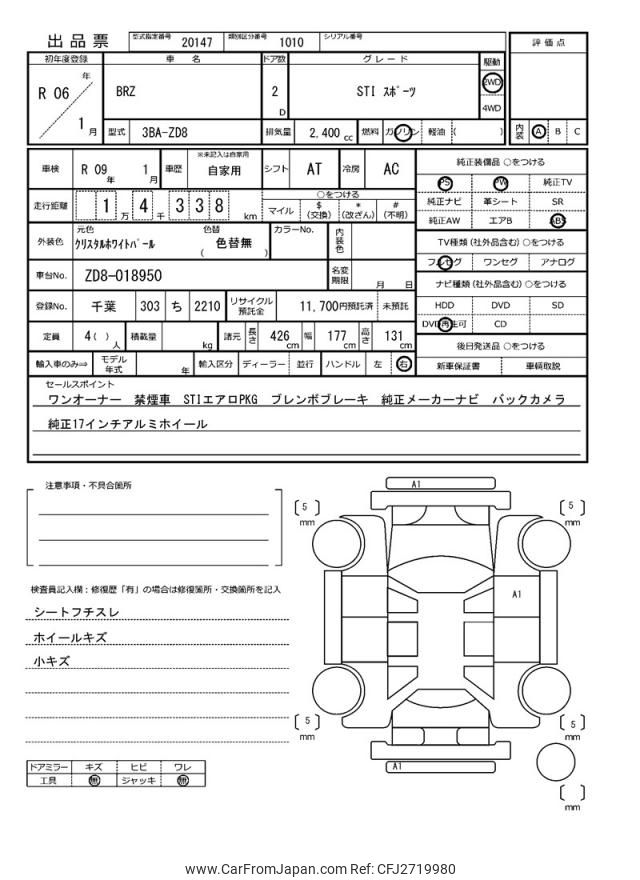 出品票 型式指定番号 20147 類別区分番号 1010 シリアル番号
評価点
初年度登録 車名 ドア数 グレード 駆動
R 06 年 1 月 BRZ 2 D STI スポーツ 2WD 4WD
型式 3BA-ZD8 排気量 2,400 cc 燃料 ガソリン 軽油 ( ) 内装 A B C
車検 R 09 年 1 月 車歴 ※未記入は自家用 自家用 シフト AT 冷房 AC
純正装備品 ○をつける
PS PW 純正TV
純正ナビ 革シート SR
純正AW エアB ABS
走行距離 1 万 4 千 3 3 8 km ○をつける マイル $ (交換) * (改ざん) # (不明)
外装色 元色 クリスタルホワイトパール 色替 ( 色替無 ) カラーNo. 内装色
TV種類 (社外品含む) ○をつける
フルセグ ワンセグ アナログ
車台No. ZD8-018950 名変期限 月 日
ナビ種類 (社外品含む) ○をつける
HDD DVD SD
DVD再生可 CD
登録No. 千葉 303 ち 2210 リサイクル預託金 11,700円預託済 未預託
定員 4 ( ) 人 積載量 kg 諸元 長さ 426 cm 幅 177 cm 高さ 131 cm
後日発送品 ○をつける
新車保証書 車輌取説
輸入車のみ⇒ モデル年式 年 輸入区分 ディーラー 並行 ハンドル 左 右
セールスポイント
ワンオーナー 禁煙車 STIエアロPKG ブレンボブレーキ 純正メーカーナビ バックカメラ
純正17インチアルミホイール
注意事項・不具合箇所
検査員記入欄：修復歴「有」の場合は修復箇所・交換箇所を記入
シートフチスレ
ホイールキズ
小キズ
ドアミラー キズ ヒビ ワレ
工具 無 ジャッキ 無
A1
5 mm
5 mm
A1
5 mm
5 mm
A1
mm
www.CarFromJapan.com Ref: CFJ2719980